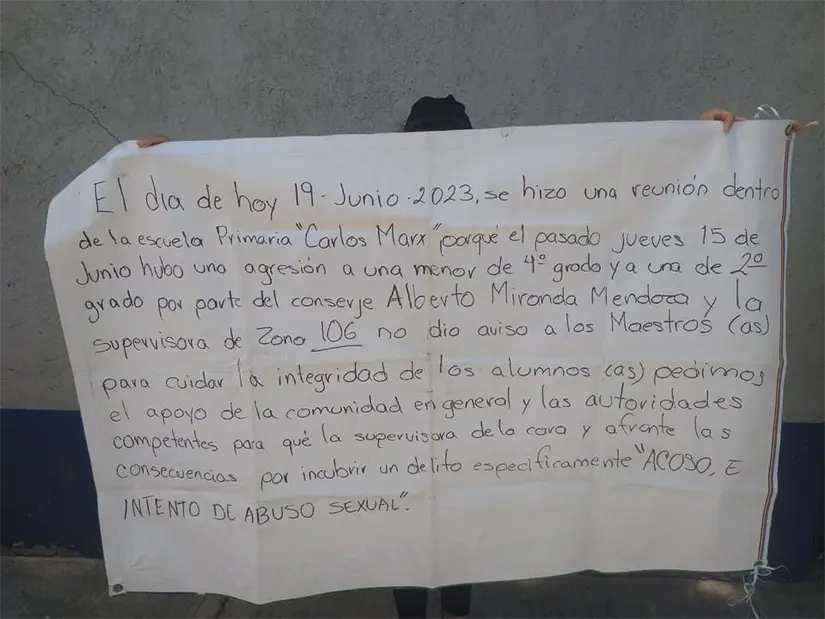 El dia de hoy 19. Junio. 2023, se hizo una reunión dentro
de la escuela Primaria "Carlos Marx" porqué el pasado jueves 15 de
Junio hubo una agresión a una menor de 4º grado y a una de 2º
grado por parte del conserje Alberto Miranda Mendoza y la
supervisora de Zona 106 no dio aviso a los Maestros (as)
para cuidar la integridad de los alumnos (as) pedimos
el apoyo de la comunidad en general y las autoridades
competentes para qué la supervisora de la cara y afronte las
consecuencias por incubrir un delito especificamente "ACOSO, E
INTENTO DE ABUSO SEXUAL".